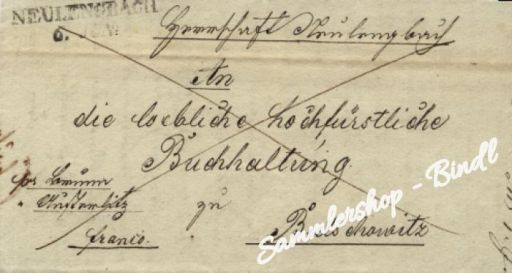 NEULENGBACH
6.
Herrschaft Neulengbach
An
die loebliche hochfürstliche
Buchhaltung
per Brünn
" Austerlitz
zu
franco.
Sammlershop - Bindl